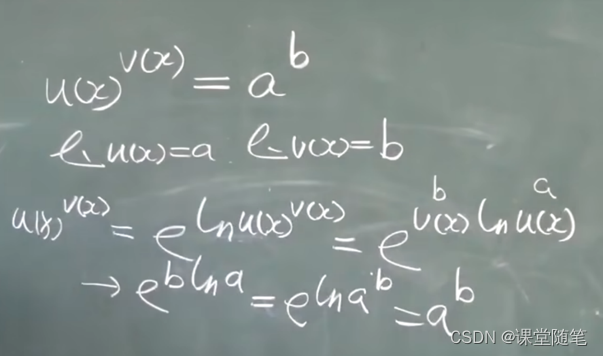 u(x)^v(x) = a^b
l u(x)=a l v(x)=b
u(x)^v(x) = e^(ln u(x)^v(x)) = e^(v(x) ln u(x)) b a
→ e^(b ln a) = e^(ln a^b) = a^b
CSDN @课堂随笔